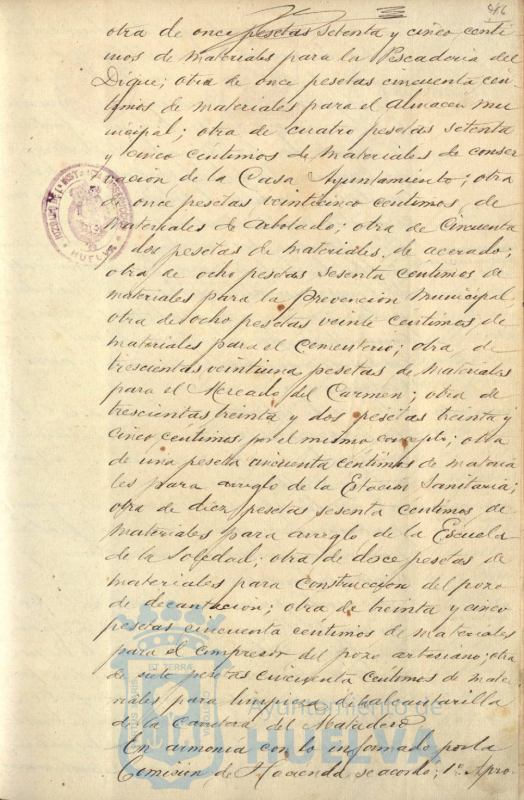 otra de once pesetas setenta y cinco centi
mos de materiales para la Pescaderia del
Dique; otra de once pesetas cincuenta cen
timos de materiales para el Almacen mu
nicipal; otra de cuatro pesetas setenta
y cinco centimos de materiales de conser
vacion de la Casa Ayuntamiento; otra
de once pesetas veinticinco centimos de
materiales de Arbolado; otra de cincuenta
y dos pesetas de materiales de acerado;
otra de ocho pesetas sesenta centimos de
materiales para la Prevencion Municipal,
otra de ocho pesetas veinte centimos de
materiales para el cementerio; otra de
trescientas veintiuna pesetas de materiales
para el Mercado del Carmen; otra de
trescientas treinta y dos pesetas treinta y
cinco centimos por el mismo concepto; otra
de una peseta cincuenta centimos de materia
les para arreglo de la Estacion Sanitaria;
otra de diez pesetas sesenta centimos de
materiales para arreglo de la Escuela
de la Soledad; otra de doce pesetas de
materiales para construccion del pozo
de decantacion; otra de treinta y cinco
pesetas cincuenta centimos de materiales
para el compresor del pozo artesiano; otra
de siete pesetas cincuenta centimos de mate
riales para limpieza de la alcantarilla
de la Carretera del Matadero
En armonia con lo informado por la
Comision de Hacienda se acordo; 1º Apro
HUELVA
ET TERRÆ
Ayuntamiento de
HUELVA